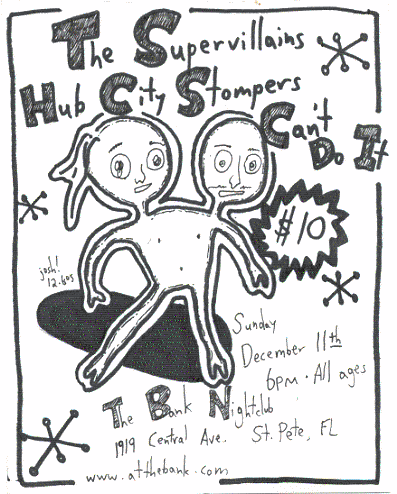 The Supervillains
Hub City Stompers
Can't
Do It
$10
josh!
12.6.05
Sunday
December 11th
6pm · All ages
The Bank Nightclub
1919 Central Ave. St. Pete, FL
www.atthebank.com